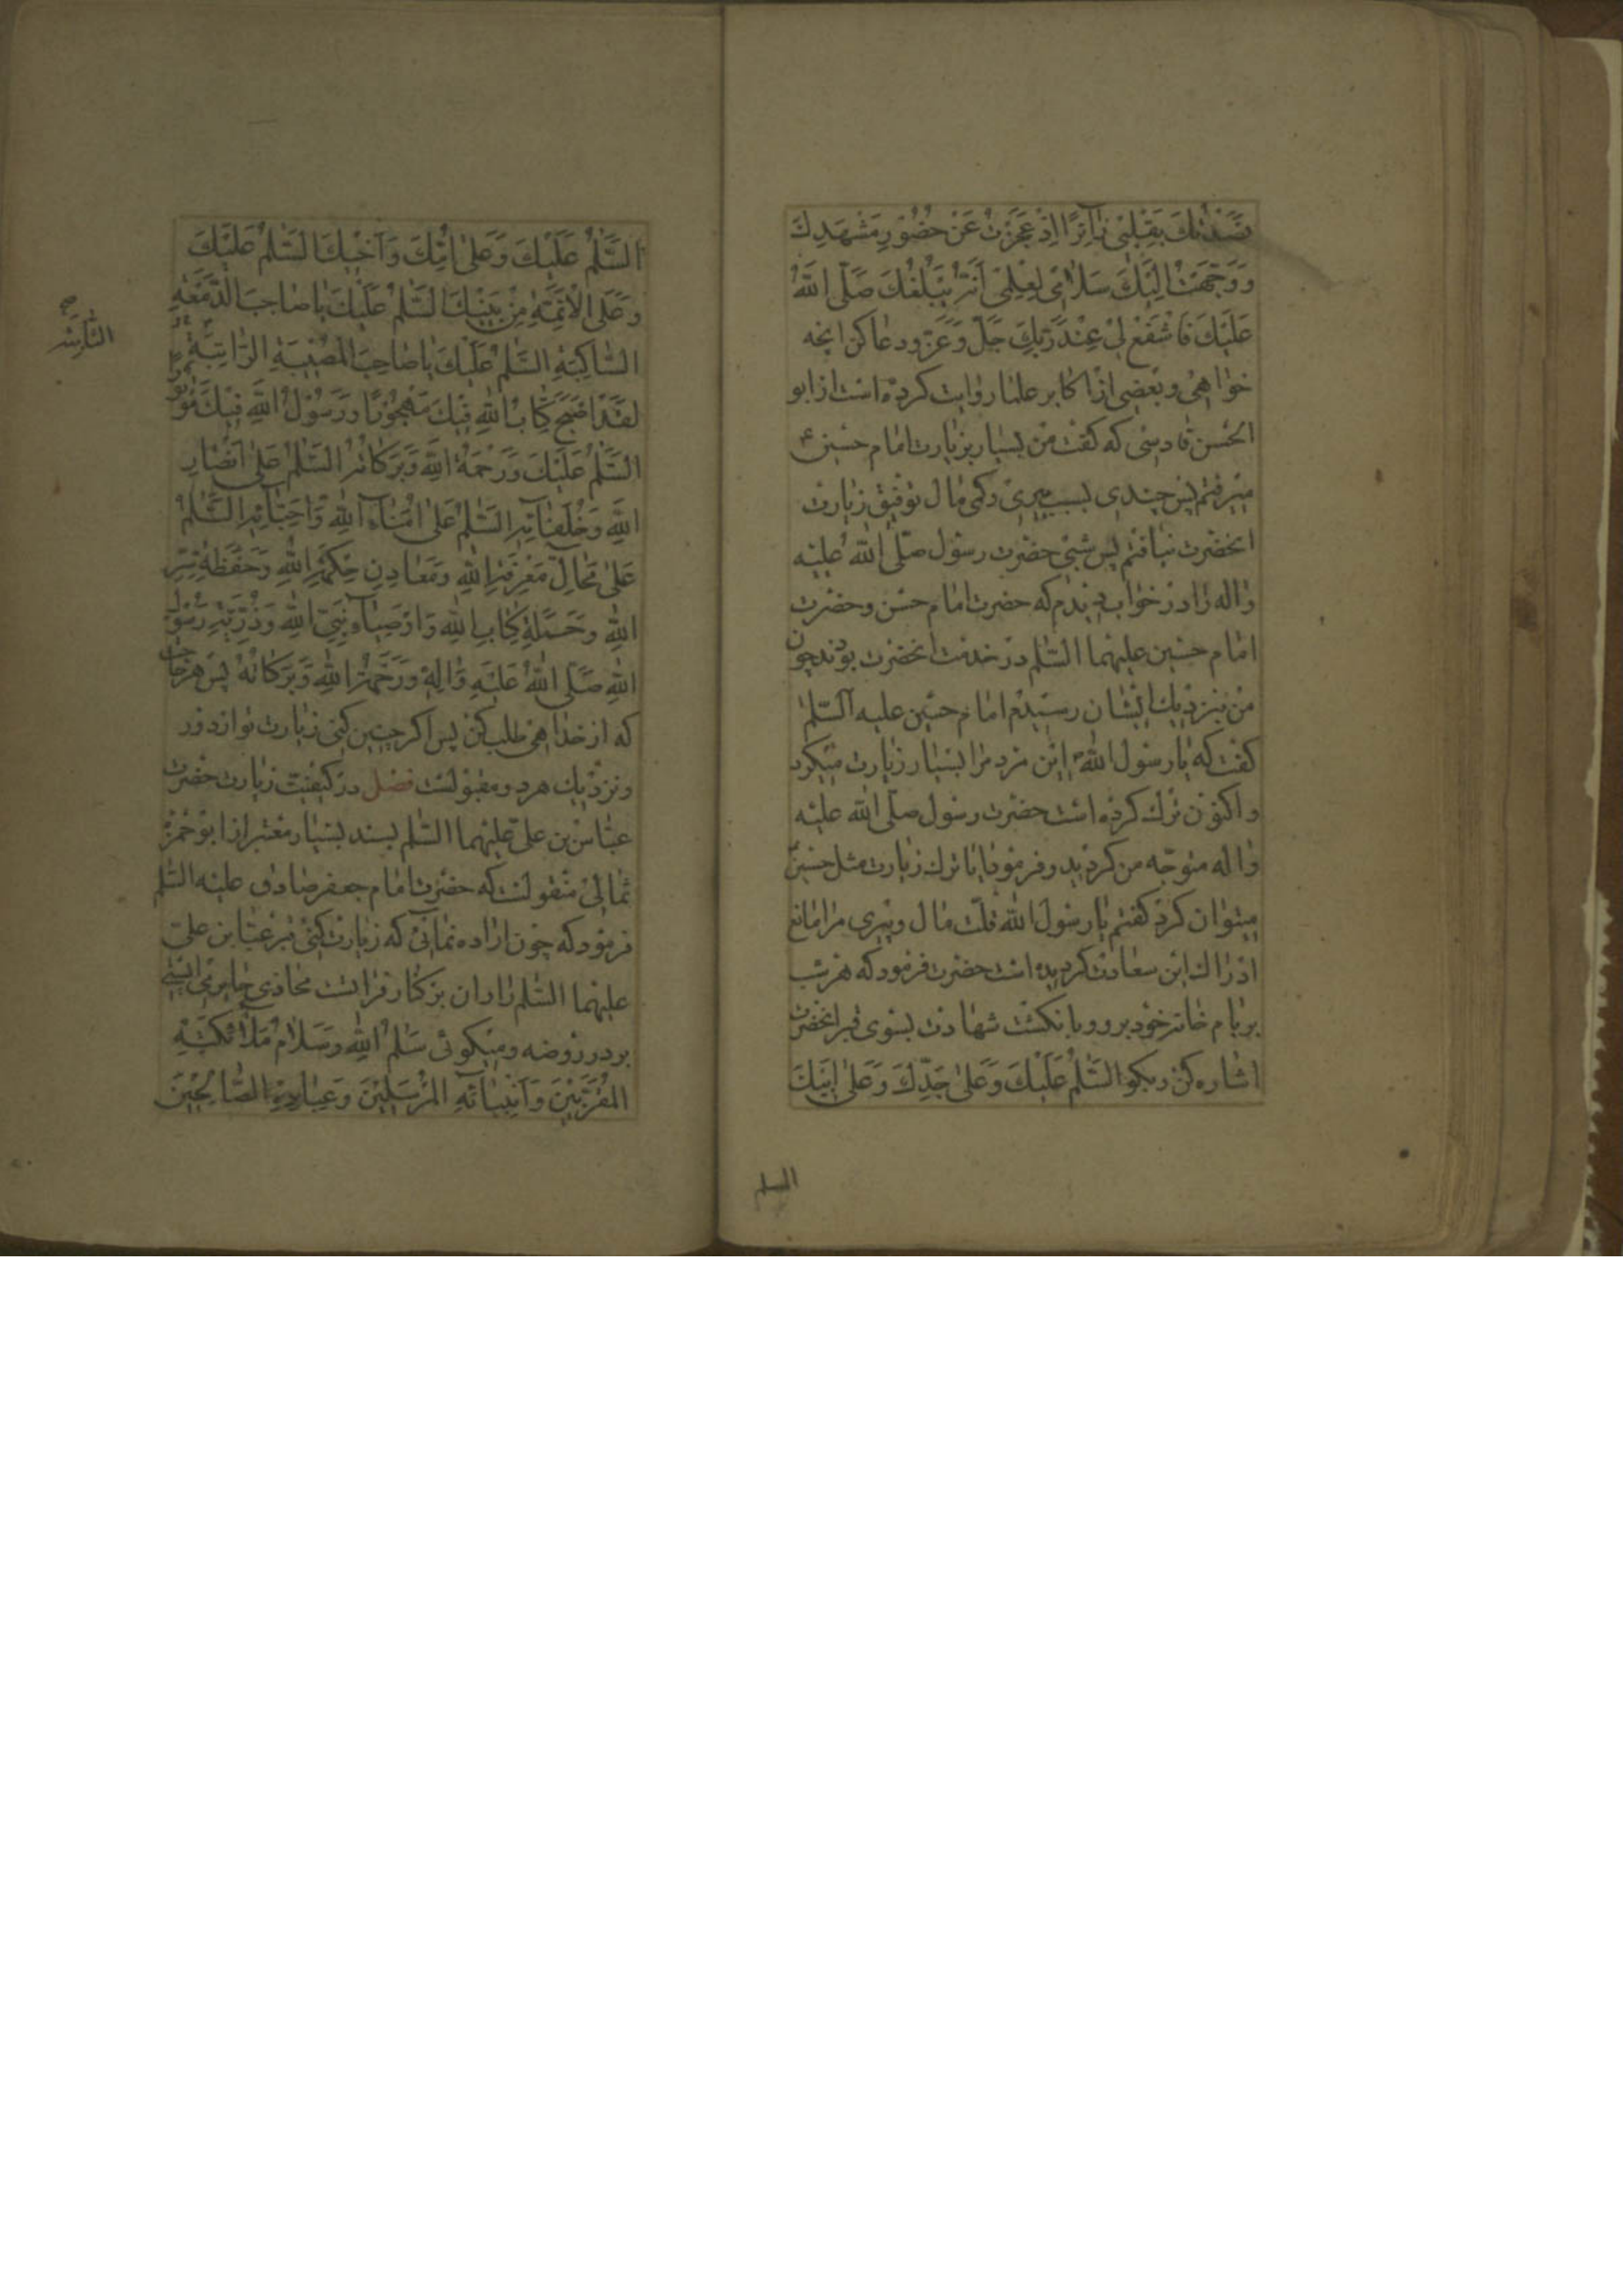 قصدتك بقلبی زآئرًا اذ عجزت عن حضور مشهدك
و وجهت الیك سلامی لعلمی انه یبلغك صلی الله
علیك فاشفع لی عند ربك جل و عز و دعا کن انچه
خواهی و بعضی از اکابر علما روایت کرده است از ابو
الحسن فادسی که کفت من بسیار بزیارت امام حسین ع
میرفتم پس چندی بسبب پیری و کمی مال توفیق زیارت
انحضرت نیافتم پس شبی حضرت رسول صلی الله علیه
و اله را در خواب دیدم که حضرت امام حسن و حضرت
امام حسین علیهما السلم در خدمت انحضرت بودند چون
من بنزدیك ایشان رسیدم امام حسین علیه السلم
کفت که یا رسول الله این مرد مرا بسیار زیارت میکرد
و اکنون ترك کرده است حضرت رسول صلی الله علیه
و اله متوجه من کردید و فرمود ایا ترك زیارت مثل حسین
میتوان کرد کفتم یا رسول الله قلت مال و پیری مرا مانع
ادراك این سعادت کردیده است حضرت فرمود که هر شب
بر بام خانه خود برو و با نکشت شهادت بسوی قبر انحضرت
اشاره کن و بکو السلم علیك و علی جدك و علی ابیك
السلم
السلم علیك و علی امك و اخیك السلم علیك
و علی الائمة من بنیك السلم علیك یا صاحب الدمعة
الساکبة السلم علیك یا صاحب المصیبة الراتبة
لقد اصبح کتاب الله فیك مهجورًا و رسول الله فیك موتورًا
السلم علیك و رحمة الله و برکاته السلم علی انصار
الله و خلفآئه السلم علی امنآء الله و احبآئه السلم
علی محال معرفة الله و معادن حکمة الله و حفظة سر
الله و حملة کتاب الله و اوصیآء نبی الله و ذریة رسول
الله صلی الله علیه و اله و رحمة الله و برکاته پس هر حاجت
که از خداهی طلب کن پس اکر چنین کنی زیارت تو از دور
و نزدیك هر دو مقبولست فصل در کیفیت زیارت حضرت
عباس بن علی علیهما السلم بسند بسیار معتبر از ابو حمزه
ثمالی منقولست که حضرت امام جعفر صادق علیه السلم
فرمود که چون اراده نمائی که زیارت کنی قبر عباس بن علی
علیهما السلم را و ان بر کنار فراتست محاذی حایر می ایستی
بر در روضه و میکوئی سلم الله و سلام ملائکته
المقربین و انبیائه المرسلین و عباده الصالحین